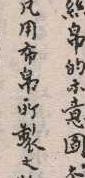 絲帛的示意圖
凡用布帛所製之